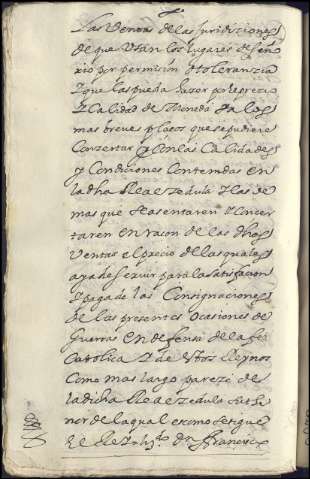 Las Ventas de las juridiciones
de que Usan los lugares de señ
rio por permision Otolerancia
Y que las pueda hazer por los precio
Y Calidad de Moneda a los
mas breves plaços que se pudiere
Conzertar Con las Calidades
y Condiciones Contenidas en
la dha Real Zedula Y las de
mas que se asentaren Y Concer
taren en racon de las dhas
Ventas el precio de las quales
aya de servir para la satisfacion
Y paga de las Consignaciones
de las presentes ocasiones de
Guerras en defensa de la fee
Catolica Y de Vtros Reynos
Como mas largo pareze de
la dicha Real Zedula su the
nor de la qual es como se sigue
El Rey Don Francisco